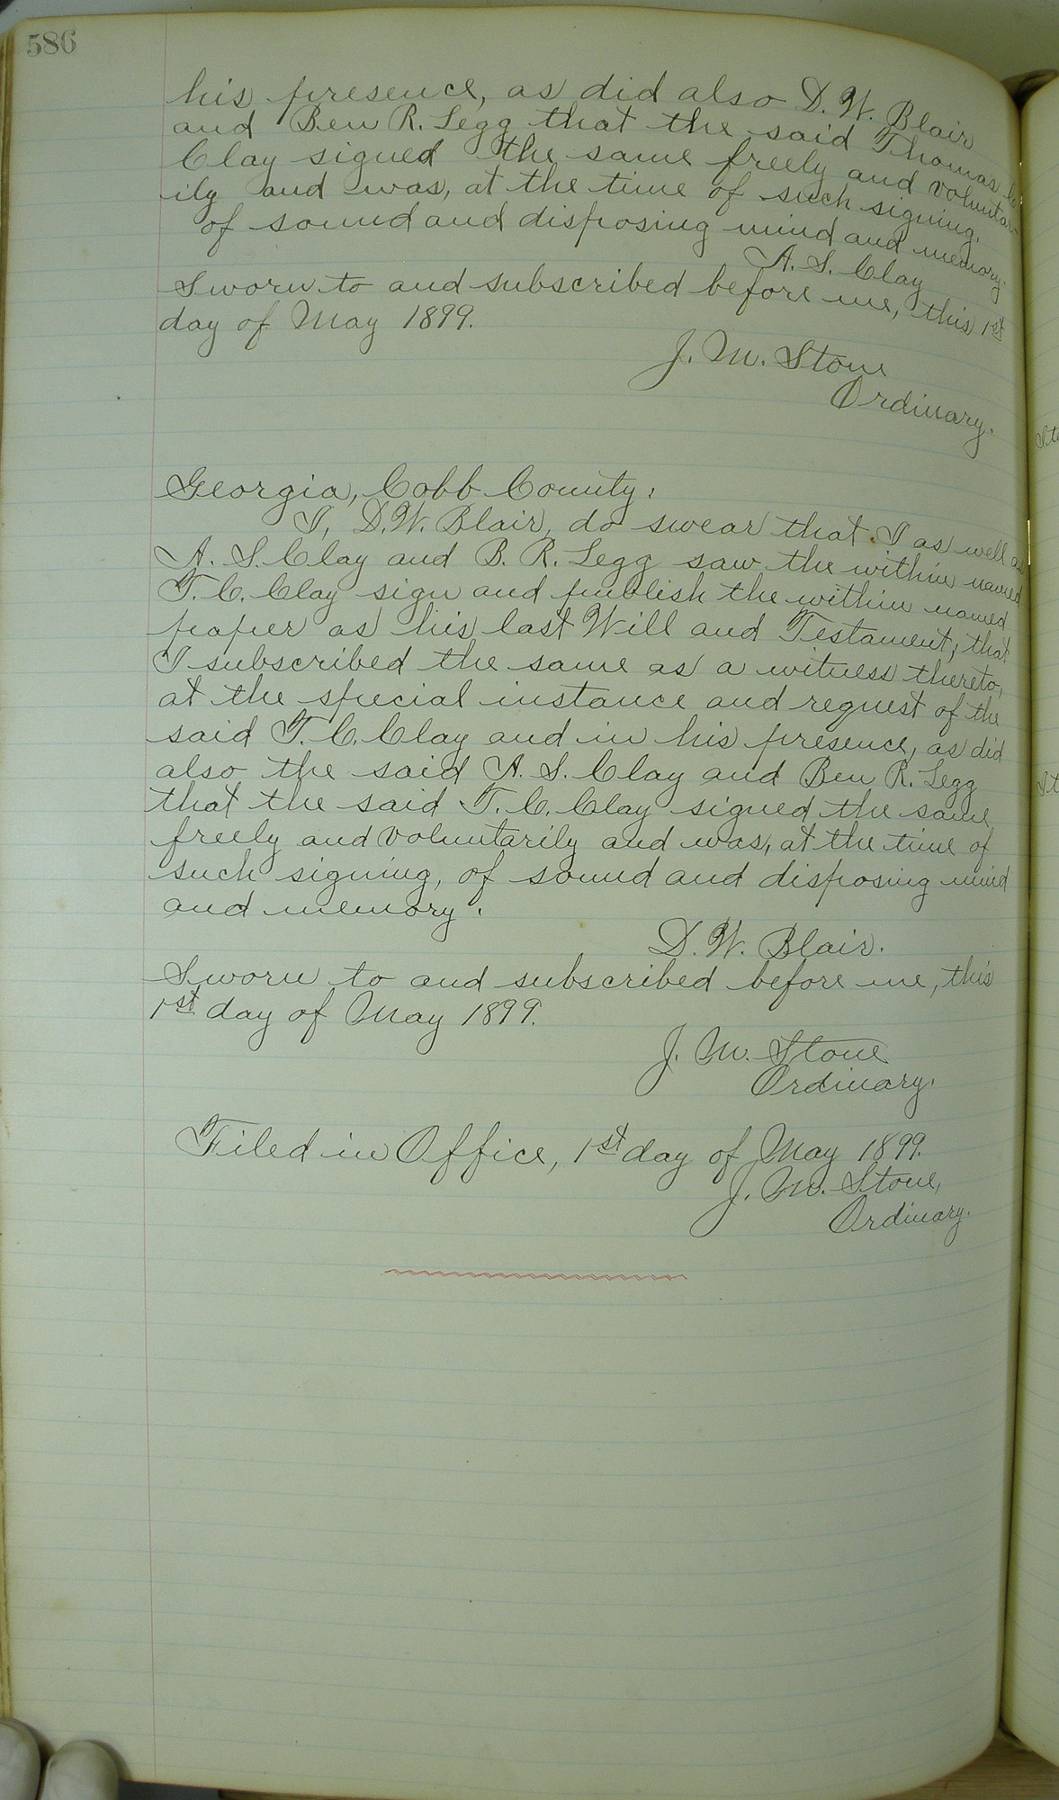 586
his presence, as did also D. W. Blair
and Ben R. Legg that the said Thomas
Clay signed the same freely and voluntar-
ily and was, at the time of such signing,
of sound and disposing mind and memory.
A. S. Clay
Sworn to and subscribed before me, this 1st
day of May 1899.
J. M. Stone
Ordinary.
Georgia, Cobb County:
I, D. W. Blair, do swear that I as well as
A. S. Clay and B. R. Legg saw the within named
T. C. Clay sign and publish the within named
paper as his last Will and Testament; that
I subscribed the same as a witness thereto,
at the special instance and request of the
said T. C. Clay and in his presence, as did
also the said A. S. Clay and Ben R. Legg
that the said T. C. Clay signed the same
freely and voluntarily and was, at the time of
such signing, of sound and disposing mind
and memory.
D. W. Blair.
Sworn to and subscribed before me, this
1st day of May 1899.
J. M. Stone
Ordinary.
Filed in Office, 1st day of May 1899.
J. M. Stone,
Ordinary.